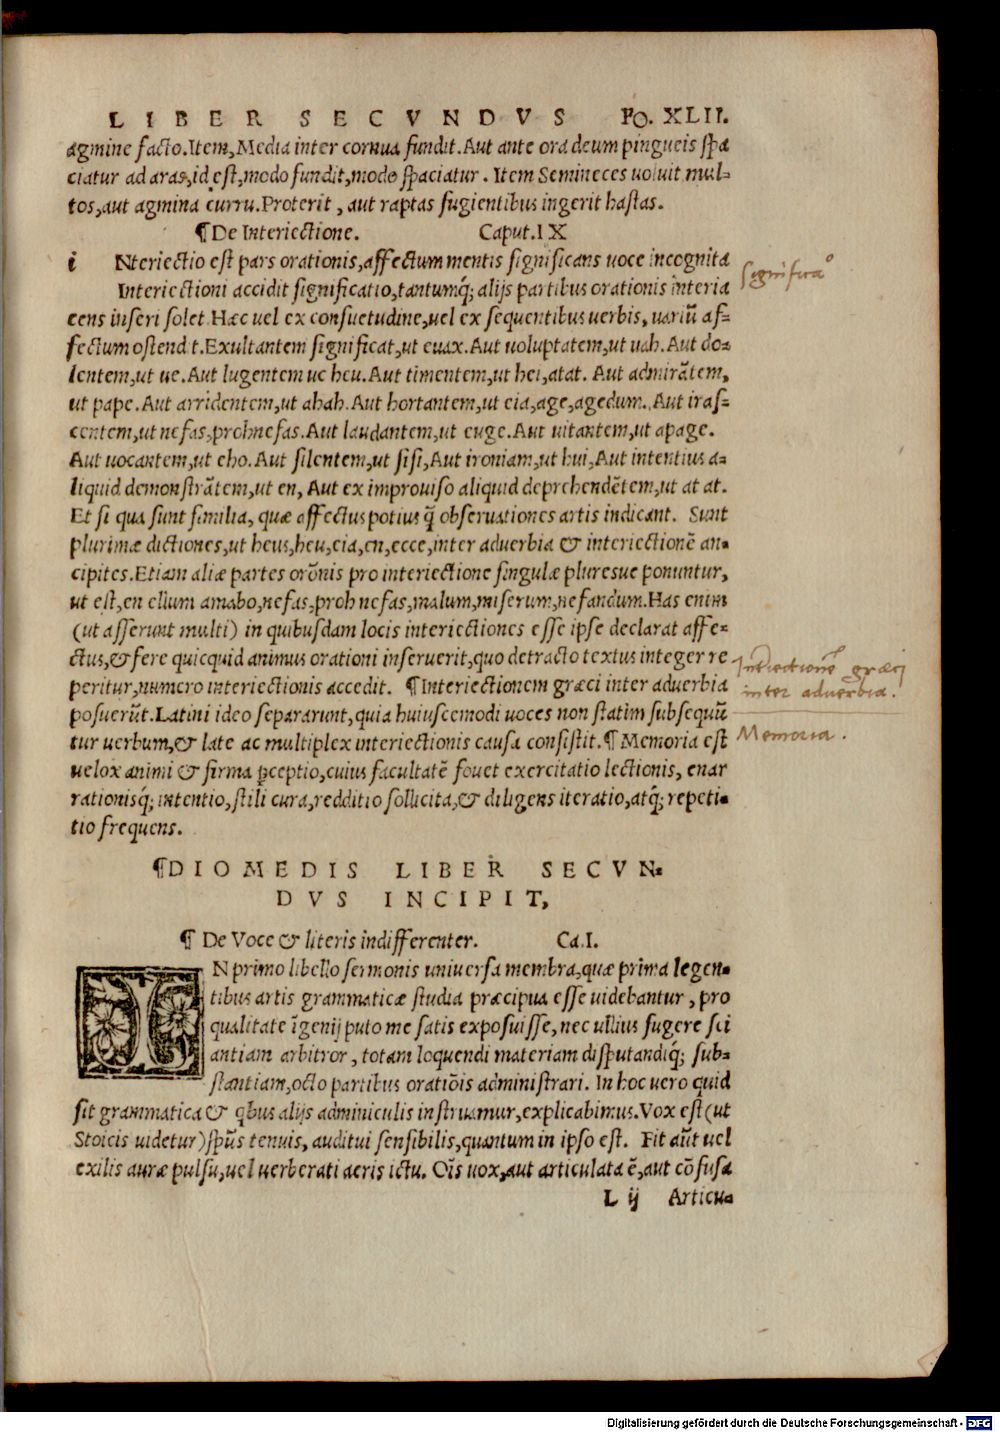 LIBER SECVNDVS FO. XLII.
agmine facto. Item, Media inter cornua fundit. Aut ante ora deum pingueis spa
ciatur ad aras, id est, modo fundit, modo spaciatur. Item Semineces uoluit mul-
tos, aut agmina curru. Proterit, aut raptas fugientibus ingerit hastas.
¶ De Interiectione. Caput. IX
i Nteriectio est pars orationis, affectum mentis significans uoce incognita
Significatio
Interiectioni accidit significatio, tantumq́; alijs partibus orationis interia
cens inseri solet. Hæc uel ex consuetudine, uel ex sequentibus uerbis, uariũ af-
fectum ostend t. Exultantem significat, ut euax. Aut uoluptatem, ut uah. Aut do-
lentem, ut ue. Aut lugentem ut heu. Aut timentem, ut hei, atat. Aut admirãtem,
ut pape. Aut arridentem, ut ahah. Aut hortantem, ut eia, age, agedum. Aut iras-
centem, ut nefas, proh nefas. Aut laudantem, ut euge. Aut uitantem, ut apage.
Aut uocantem, ut eho. Aut silentem, ut sisi, Aut ironiam, ut hui, Aut intentius a-
liquid demonstrãtem, ut en, Aut ex improuiso aliquid deprehendẽtem, ut at at.
Et si qua sunt similia, quæ affectus potius q̃ obseruationes artis indicant. Sunt
plurimæ dictiones, ut heus, heu, eia, en, ecce, inter aduerbia & interiectionẽ an-
cipites. Etiam aliæ partes orõnis pro interiectione singulæ pluresue ponuntur,
ut est, en ellum amabo, nefas, proh nefas, malum, miserum, nefandum. Has enim
(ut asserunt multi) in quibusdam locis interiectiones esse ipse declarat affe-
ctus, & fere quicquid animus orationi inseruerit, quo detracto textus integer re
peritur, numero interiectionis accedit. ¶ Interiectionem græci inter aduerbia
Interiectionẽ græcj
inter aduerbia.
posuerũt. Latini ideo separarunt, quia huiuscemodi uoces non statim subsequũ
tur uerbum, & late ac multiplex interiectionis causa consistit. ¶ Memoria est
Memoria.
uelox animi & firma ꝑceptio, cuius facultatẽ fouet exercitatio lectionis, enar
rationisq́; intentio, stili cura, redditio sollicita, & diligens iteratio, atq́; repeti-
tio frequens.
¶ DIOMEDIS LIBER SECVN-
DVS INCIPIT,
¶ De Voce & literis indifferenter. Ca. I.
IN primo libello sermonis uniuersa membra, quæ prima legen-
tibus artis grammaticæ studia præcipua esse uidebantur, pro
qualitate ĩgenij puto me satis exposuisse, nec ullius fugere sci
antiam arbitror, totam loquendi materiam disputandiq́; sub-
stantiam, octo partibus oratiõis administrari. In hoc uero quid
sit grammatica & q̃bus alijs adminiculis instruamur, explicabimus. Vox est (ut
Stoicis uidetur) sp̃us tenuis, auditui sensibilis, quantum in ipso est. Fit aũt uel
exilis auræ pulsu, uel uerberati aeris ictu. Oĩs uox, aut articulata ẽ, aut cõfusa
L ij Articu-
Digitalisierung gefördert durch die Deutsche Forschungsgemeinschaft - DFG